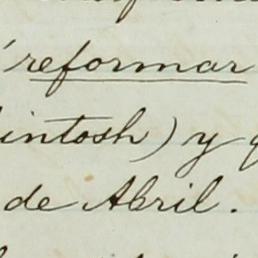 reformar
intosh) y
de Abril.